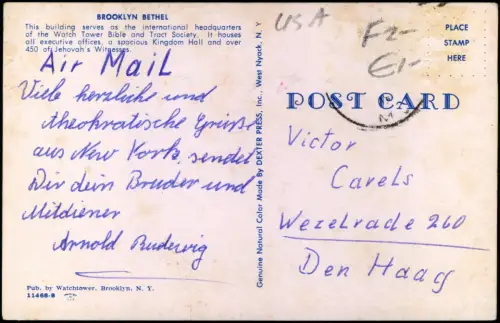 BROOKLYN BETHEL
This building serves as the international headquarters
of the Watch Tower Bible and Tract Society. It houses
all executive offices, a spacious Kingdom Hall and over
450 of Jehovah's Witnesses.
Air Mail
Viele herzliche und
theokratische Grüße
aus New York, sendet
Dir dein Bruder und
Mitdiener
Arnold Rudewig
Pub. by Watchtower, Brooklyn, N. Y.
11468-B
Genuine Natural Color Made By DEXTER PRESS, Inc., West Nyack, N. Y.
USA
F2-
€1-
PLACE
STAMP
HERE
POST CARD
Victor
Carels
Wezelrade 260
Den Haag